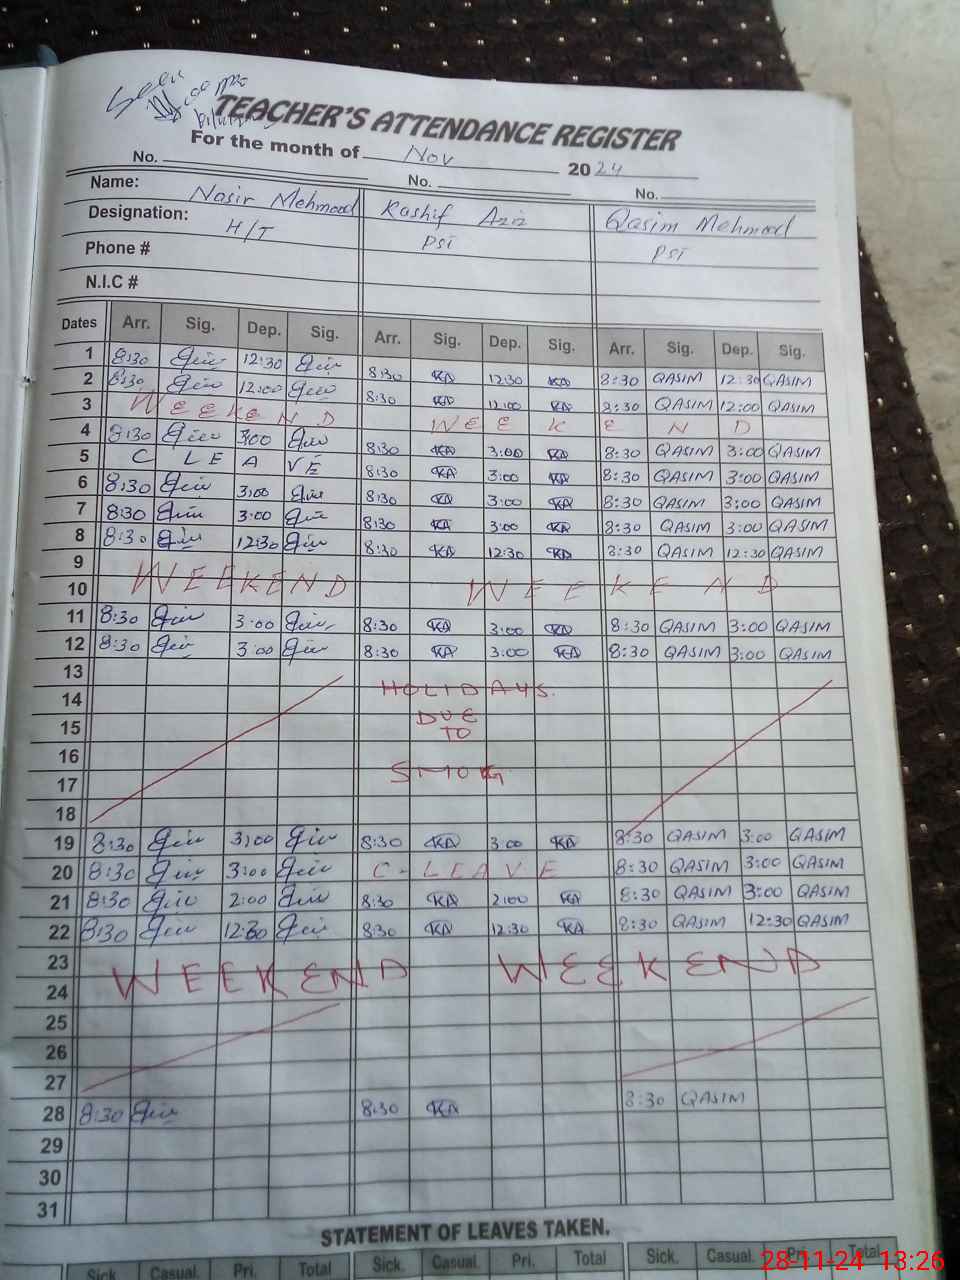 Seen
TEACHER'S ATTENDANCE REGISTER
For the month of Nov 2024
No. No. No.
Name: Nasir Mehmood Kashif Aziz Qasim Mehmood
Designation: H/T PST PST
Phone #
N.I.C #
Dates Arr. Sig. Dep. Sig. Arr. Sig. Dep. Sig. Arr. Sig. Dep. Sig.
1 8:30 12:30 8:30 KA 12:30 KA 8:30 QASIM 12:30 QASIM
2 8:30 12:00 8:30 KA 12:00 KA 8:30 QASIM 12:00 QASIM
3 WEEKEND WEEKEND
4 8:30 3:00 8:30 KA 3:00 KA 8:30 QASIM 3:00 QASIM
5 C LEAVE 8:30 KA 3:00 KA 8:30 QASIM 3:00 QASIM
6 8:30 3:00 8:30 KA 3:00 KA 8:30 QASIM 3:00 QASIM
7 8:30 3:00 8:30 KA 3:00 KA 8:30 QASIM 3:00 QASIM
8 8:30 12:30 8:30 KA 12:30 KA 8:30 QASIM 12:30 QASIM
9
10 WEEKEND WEEKEND
11 8:30 3:00 8:30 KA 3:00 KA 8:30 QASIM 3:00 QASIM
12 8:30 3:00 8:30 KA 3:00 KA 8:30 QASIM 3:00 QASIM
13
14 HOLIDAYS.
15 DUE
TO
16
17 SMOG
18
19 8:30 3:00 8:30 KA 3:00 KA 8:30 QASIM 3:00 QASIM
20 8:30 3:00 C-LEAVE 8:30 QASIM 3:00 QASIM
21 8:30 2:00 8:30 KA 2:00 KA 8:30 QASIM 3:00 QASIM
22 8:30 12:30 8:30 KA 12:30 KA 8:30 QASIM 12:30 QASIM
23 WEEKEND WEEKEND
24
25
26
27
28 8:30 8:30 KA 8:30 QASIM
29
30
31
STATEMENT OF LEAVES TAKEN.
Sick. Casual. Pri. Total Sick. Casual. Pri. Total Sick. Casual. Pri. Total
28-11-24 13:26